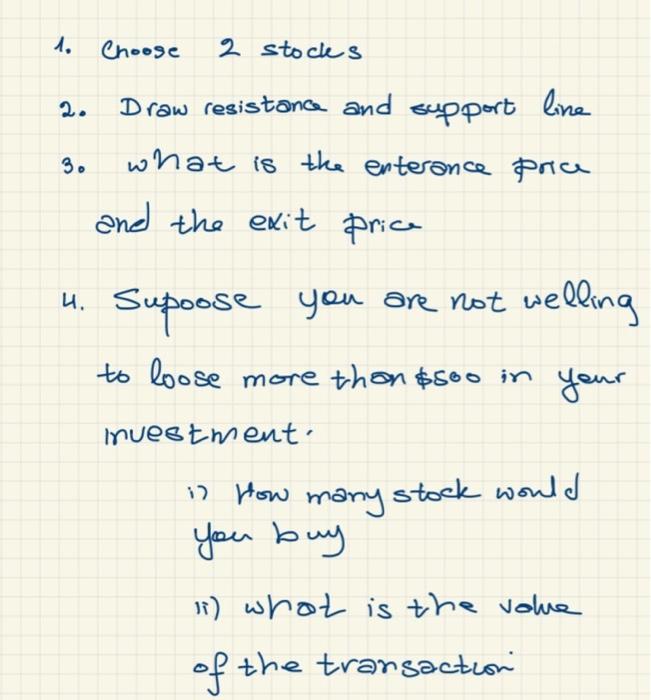 1. Choose 2 stocks
2. Draw resistance and support line
3. what is the enterance price
and the exit price
4. Supoose you are not welling
to loose more than $500 in your
investment.
i) How many stock would
you buy
ii) what is the value
of the transaction